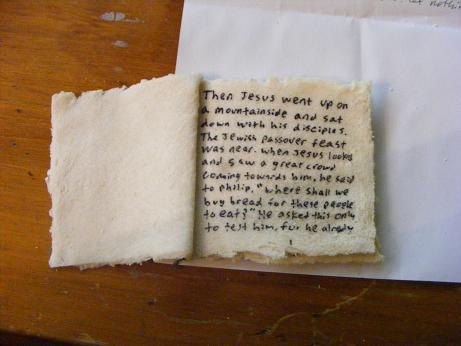 Then Jesus went up on
a mountainside and sat
down with his disciples.
The Jewish passover feast
was near. when Jesus looked
and saw a great crowd
coming towards him, he said
to philip, "where shall we
buy bread for these people
to eat?" He asked this only
to test him, for he already
1